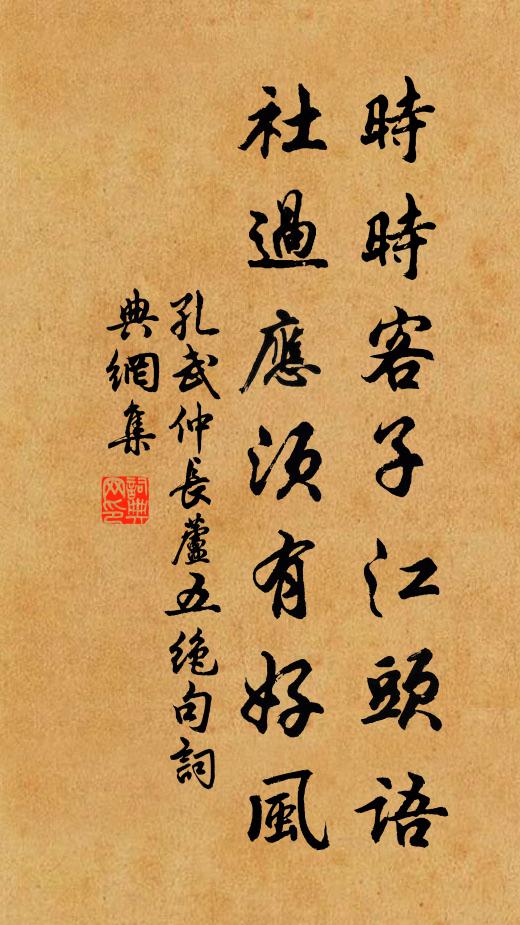 時時客子江頭語
社過應須有好風
孔武仲長蘆五絶句詞
典網集
詞典网印